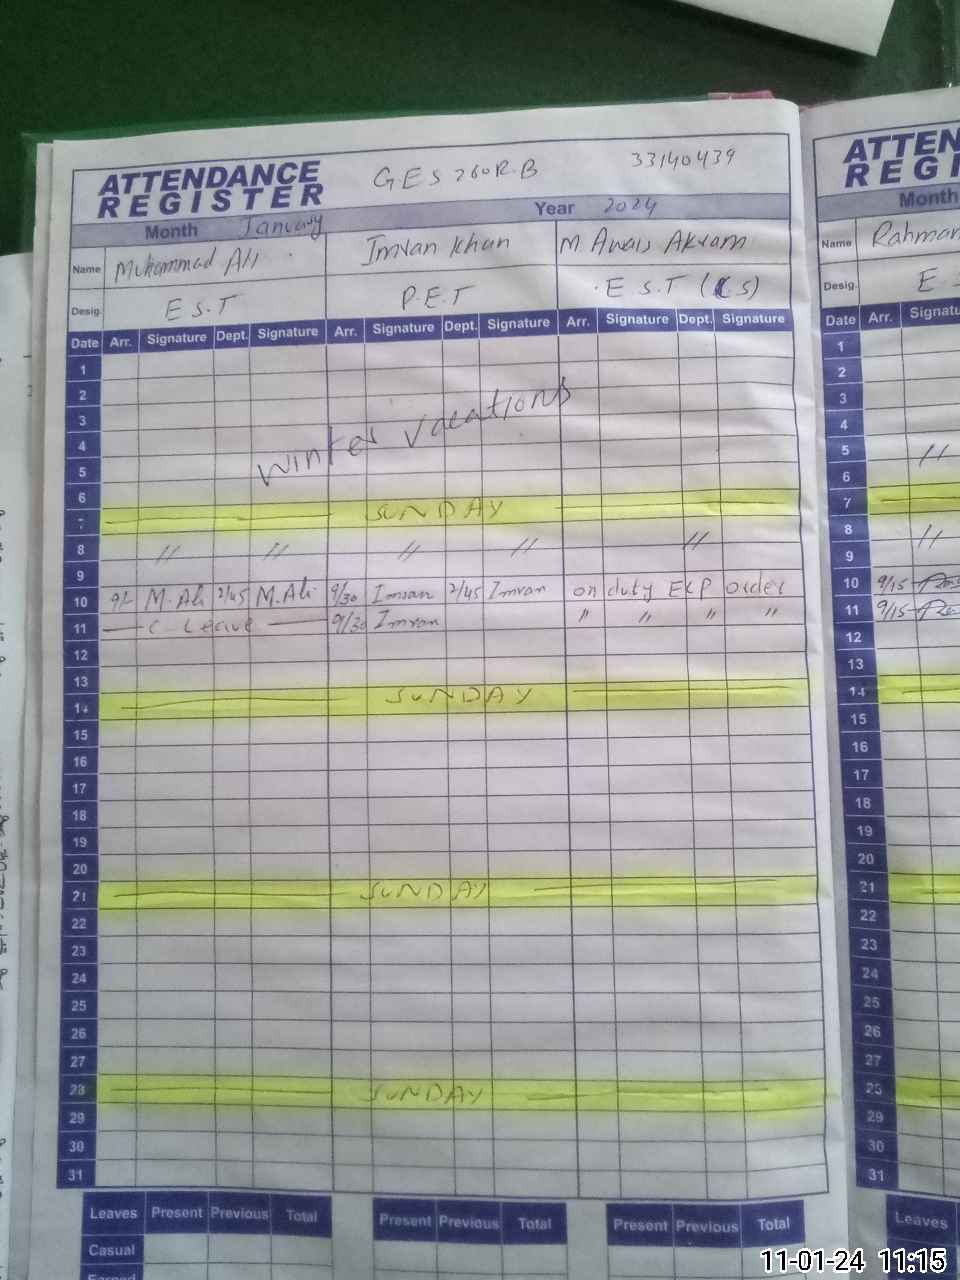 ATTENDANCE REGISTER GES 260R.B 33140439
Month January Year 2024
Name Muhammad Ali Imran Khan M. Awais Akram
Desig. E S.T P.E.T E S.T (CS)
Date Arr. Signature Dept. Signature Arr. Signature Dept. Signature Arr. Signature Dept. Signature
1
2
3
winter vacations
4
5
6
7 SUNDAY
8 // // // // //
9
10 9/- M. Ali 2/45 M. Ali 9/30 Imran 2/45 Imran on duty ECP order
11 C Leave 9/30 Imran " " " "
12
13
14 SUNDAY
15
16
17
18
19
20
21 SUNDAY
22
23
24
25
26
27
28 SUNDAY
29
30
31
Leaves Present Previous Total Present Previous Total Present Previous Total
Casual
Earned
ATTEN
REGI
Month
Name Rahman
Desig. E S
Date Arr. Signatu
1
2
3
4
5 //
6
7
8 //
9
10 9/15
11 9/15
12
13
14
15
16
17
18
19
20
21
22
23
24
25
26
27
28
29
30
31
Leaves
11-01-24 11:15